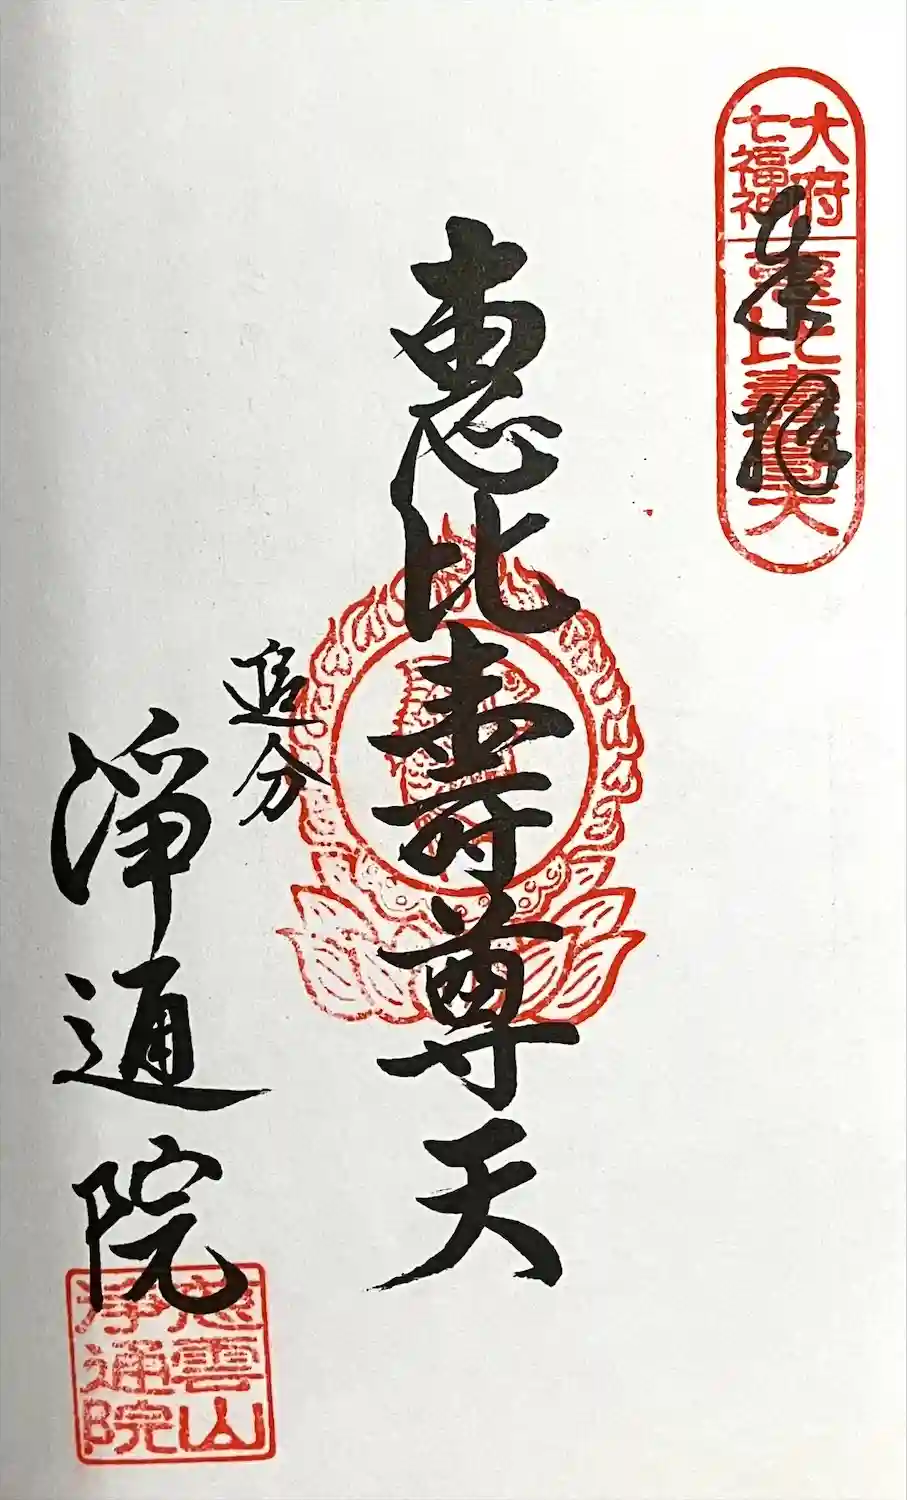 大府
七福神
恵比寿尊天
奉拝
恵比壽尊天
追分
浄通院
慈雲山
浄通院